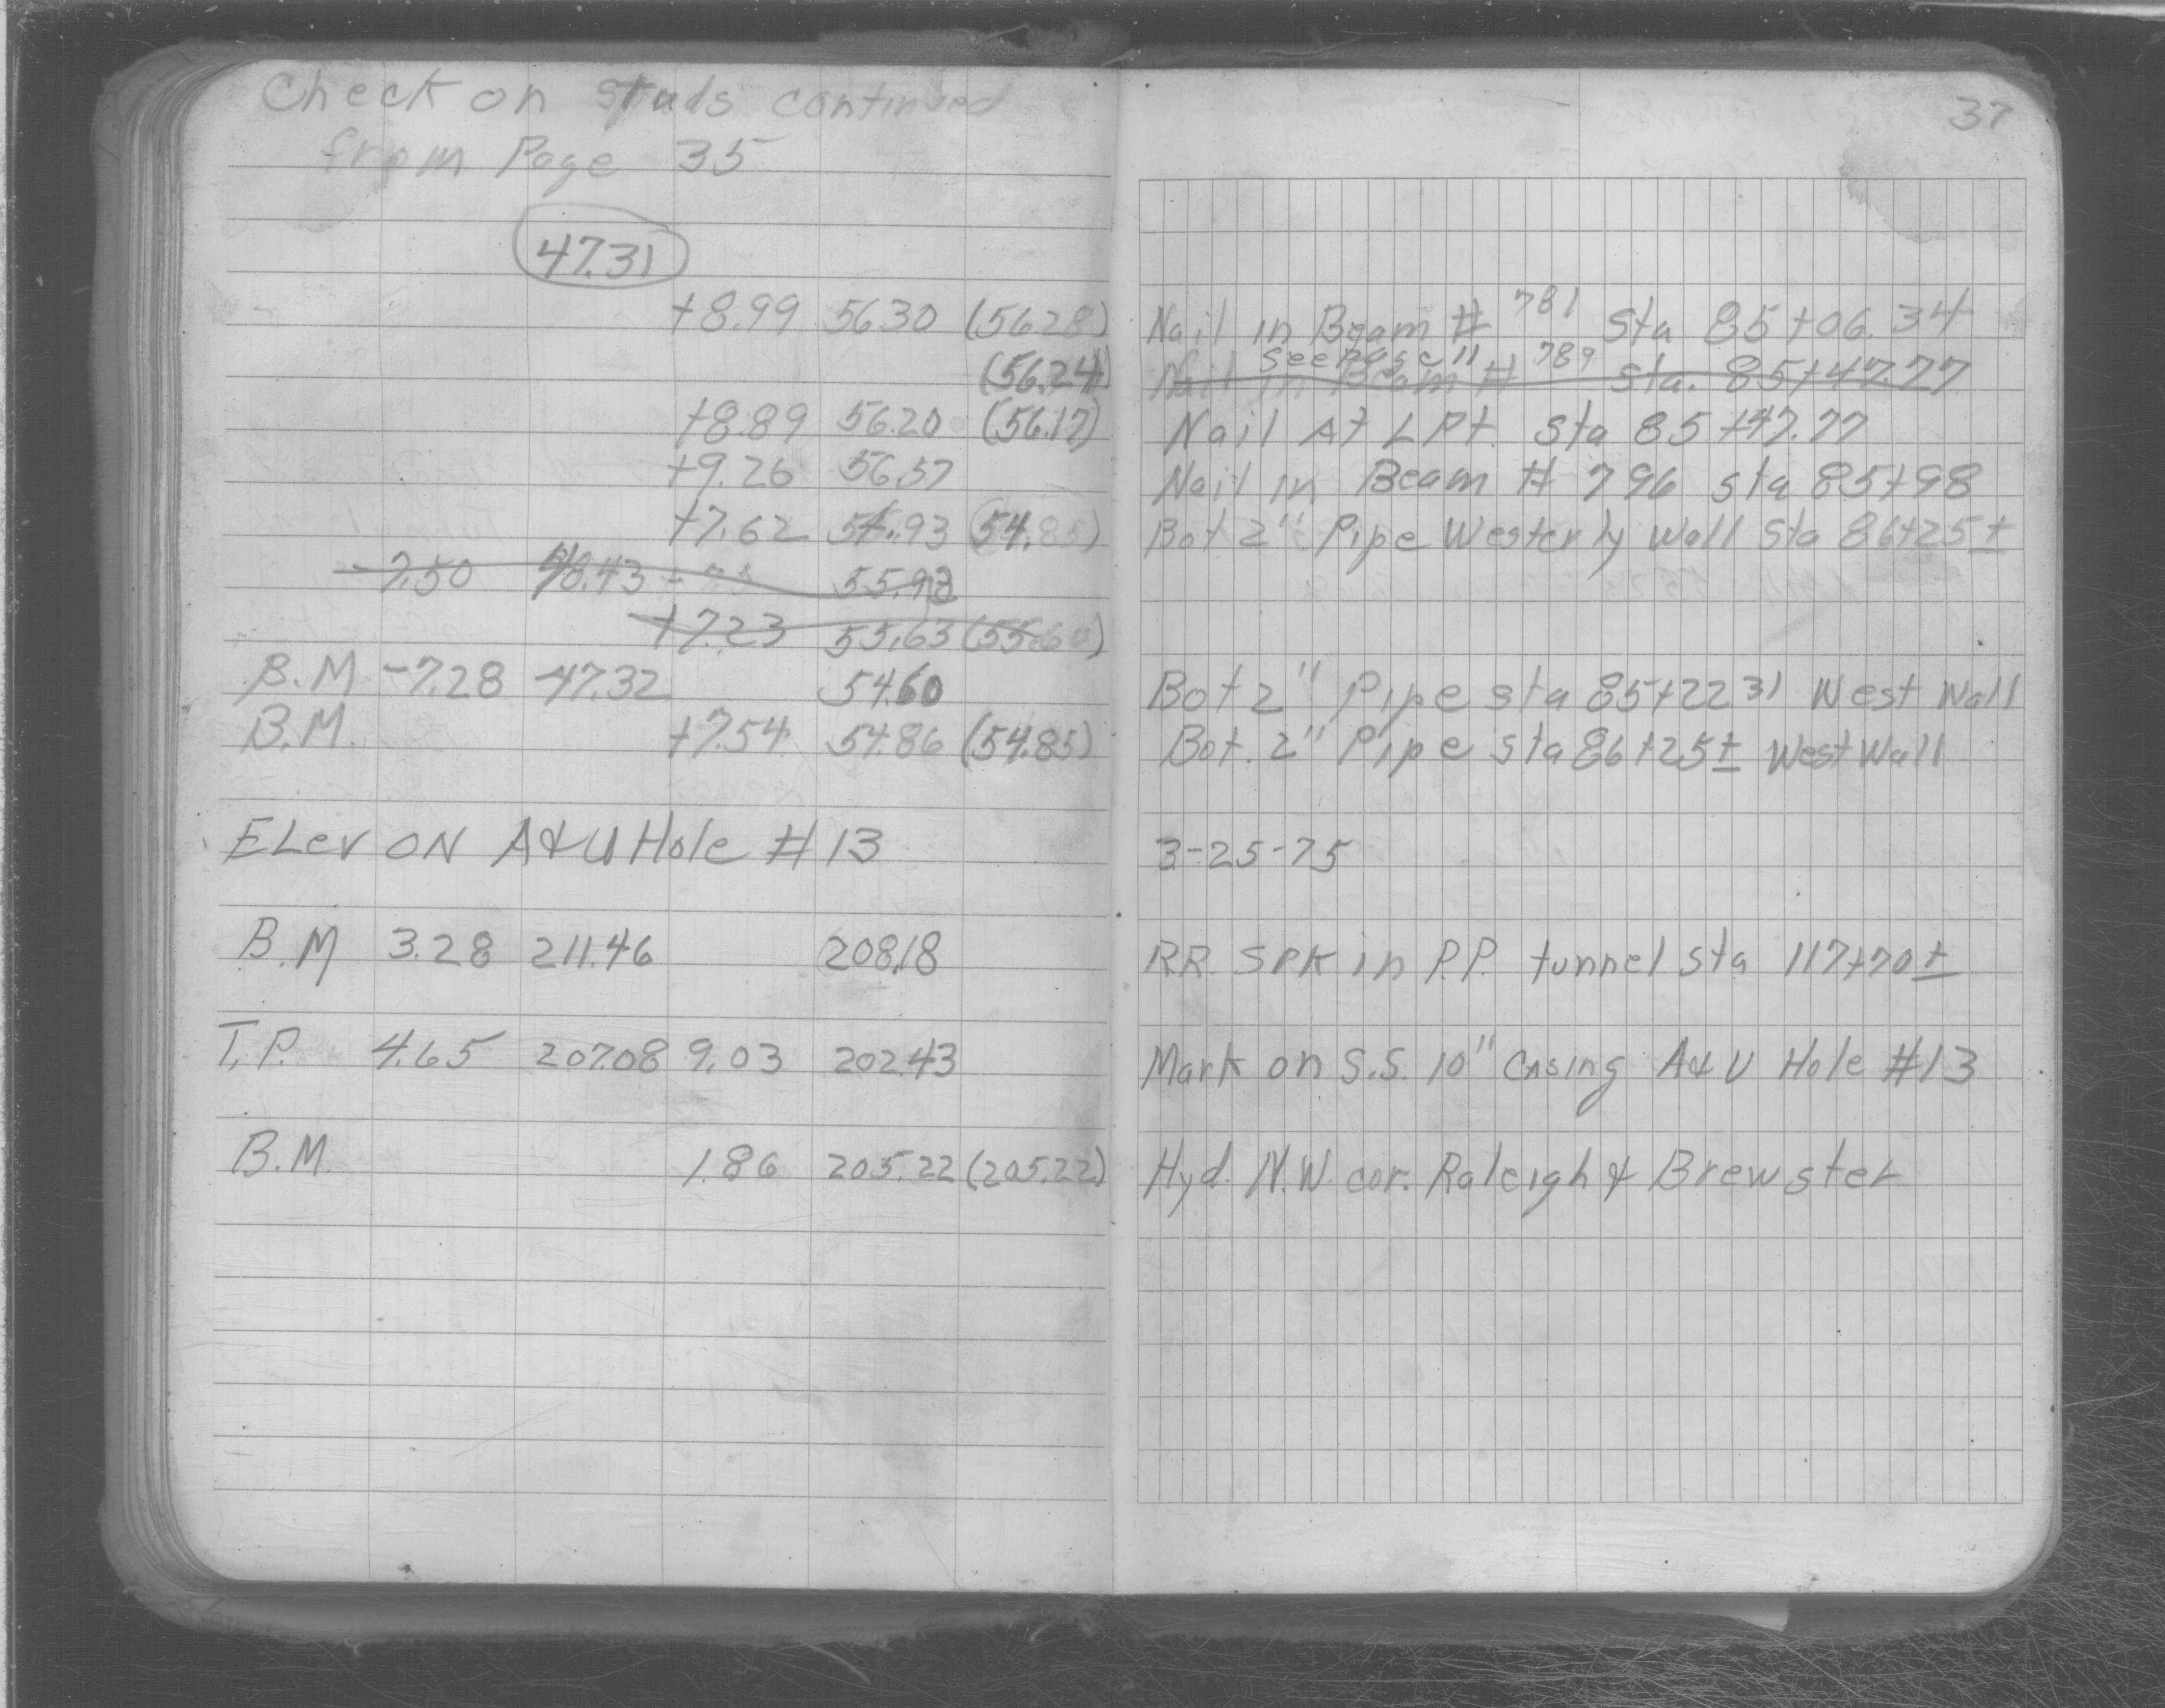 Check on Studs continued
from Page 35
37
47.31
+8.99 56.30 (56.28) Nail in Beam # 781 Sta 85+06.34
(56.24) Nail in Beam # 789 Sta. 85+47.77
seepage"
+8.89 56.20 (56.17) Nail At L Pt. Sta 85+47.77
+9.26 56.57 Nail in Beam # 796 Sta 85+98
+7.62 54.93 (54.85) Bot 2" Pipe Westerly Wall Sta 86+25±
-7.50 48.43 55.93
+7.23 55.63 (55.60)
B.M -7.28 47.32 54.60 Bot 2" Pipe Sta 85+22 31 West Wall
B.M. +7.54 54.86 (54.85) Bot. 2" Pipe Sta 86+25± West Wall
ELev ON A&U Hole #13 3-25-75
B.M 3.28 211.46 208.18 RR. SPK in P.P. tunnel Sta 117+70±
T.P. 4.65 207.08 9.03 202.43 Mark on S.S. 10" Casing A&U Hole #13
B.M. 1.86 205.22 (205.22) Hyd. N.W. cor. Raleigh & Brewster